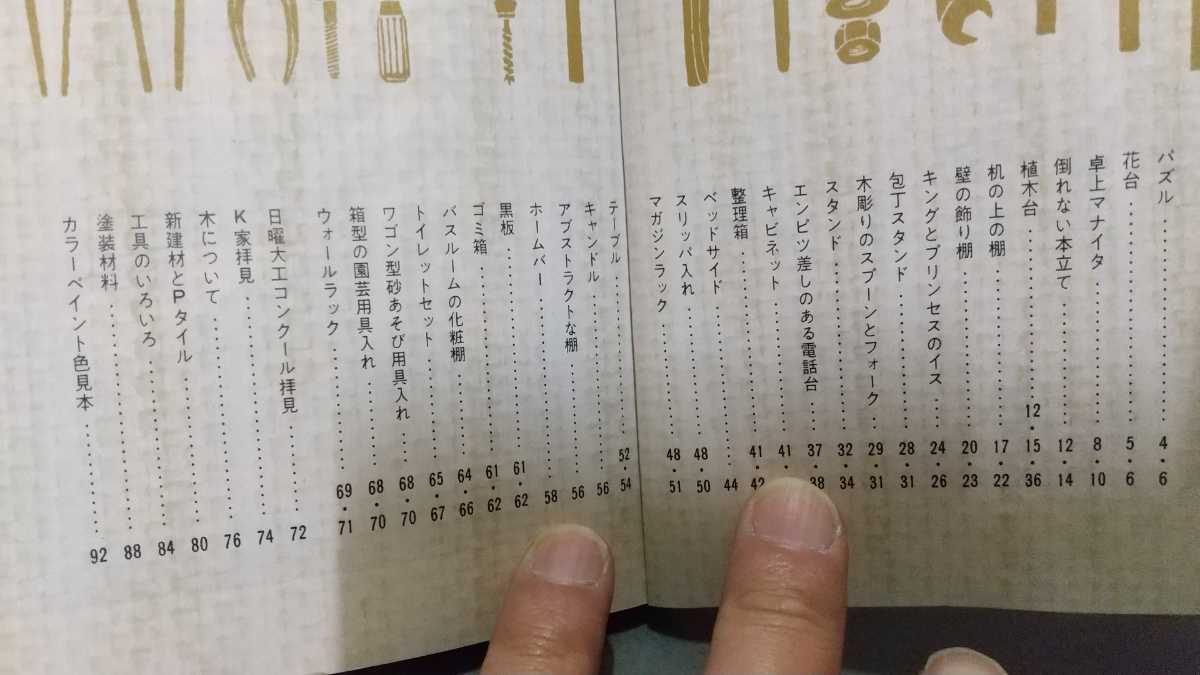 パズル……………4・6
花台……………5・6
卓上マナイタ……………8・10
倒れない本立て……………12・14
植木台……………12・15・36
机の上の棚……………17・22
壁の飾り棚……………20・23
キングとプリンセスのイス……24・26
包丁スタンド……………28・31
木彫りのスプーンとフォーク…29・31
スタンド……………32・34
エンピツ差しのある電話台…37・38
キャビネット……………41・
整理箱……………41・42
ベッドサイド……………44
スリッパ入れ……………48・50
マガジンラック……………48・51
テーブル……………52・54
キャンドル……………56
アブストラクトな棚……………56
ホームバー……………58
黒板……………61・62
ゴミ箱……………61・62
バスルームの化粧棚……………64・66
トイレットセット……………65・67
ワゴン型砂あそび用具入れ……68・70
箱型の園芸用具入れ……………68・70
ウォールラック……………69・71
日曜大工コンクール拝見……………72
K家拝見……………74
木について……………76
新建材とPタイル……………80
工具のいろいろ……………84
塗装材料……………88
カラーペイント色見本……………92